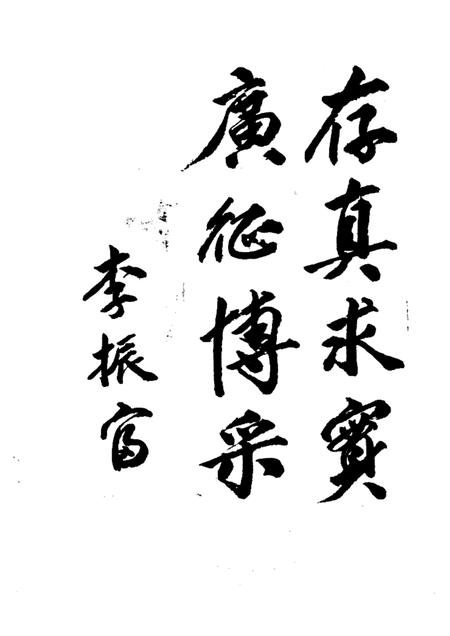 存真求實
廣征博采
李振富